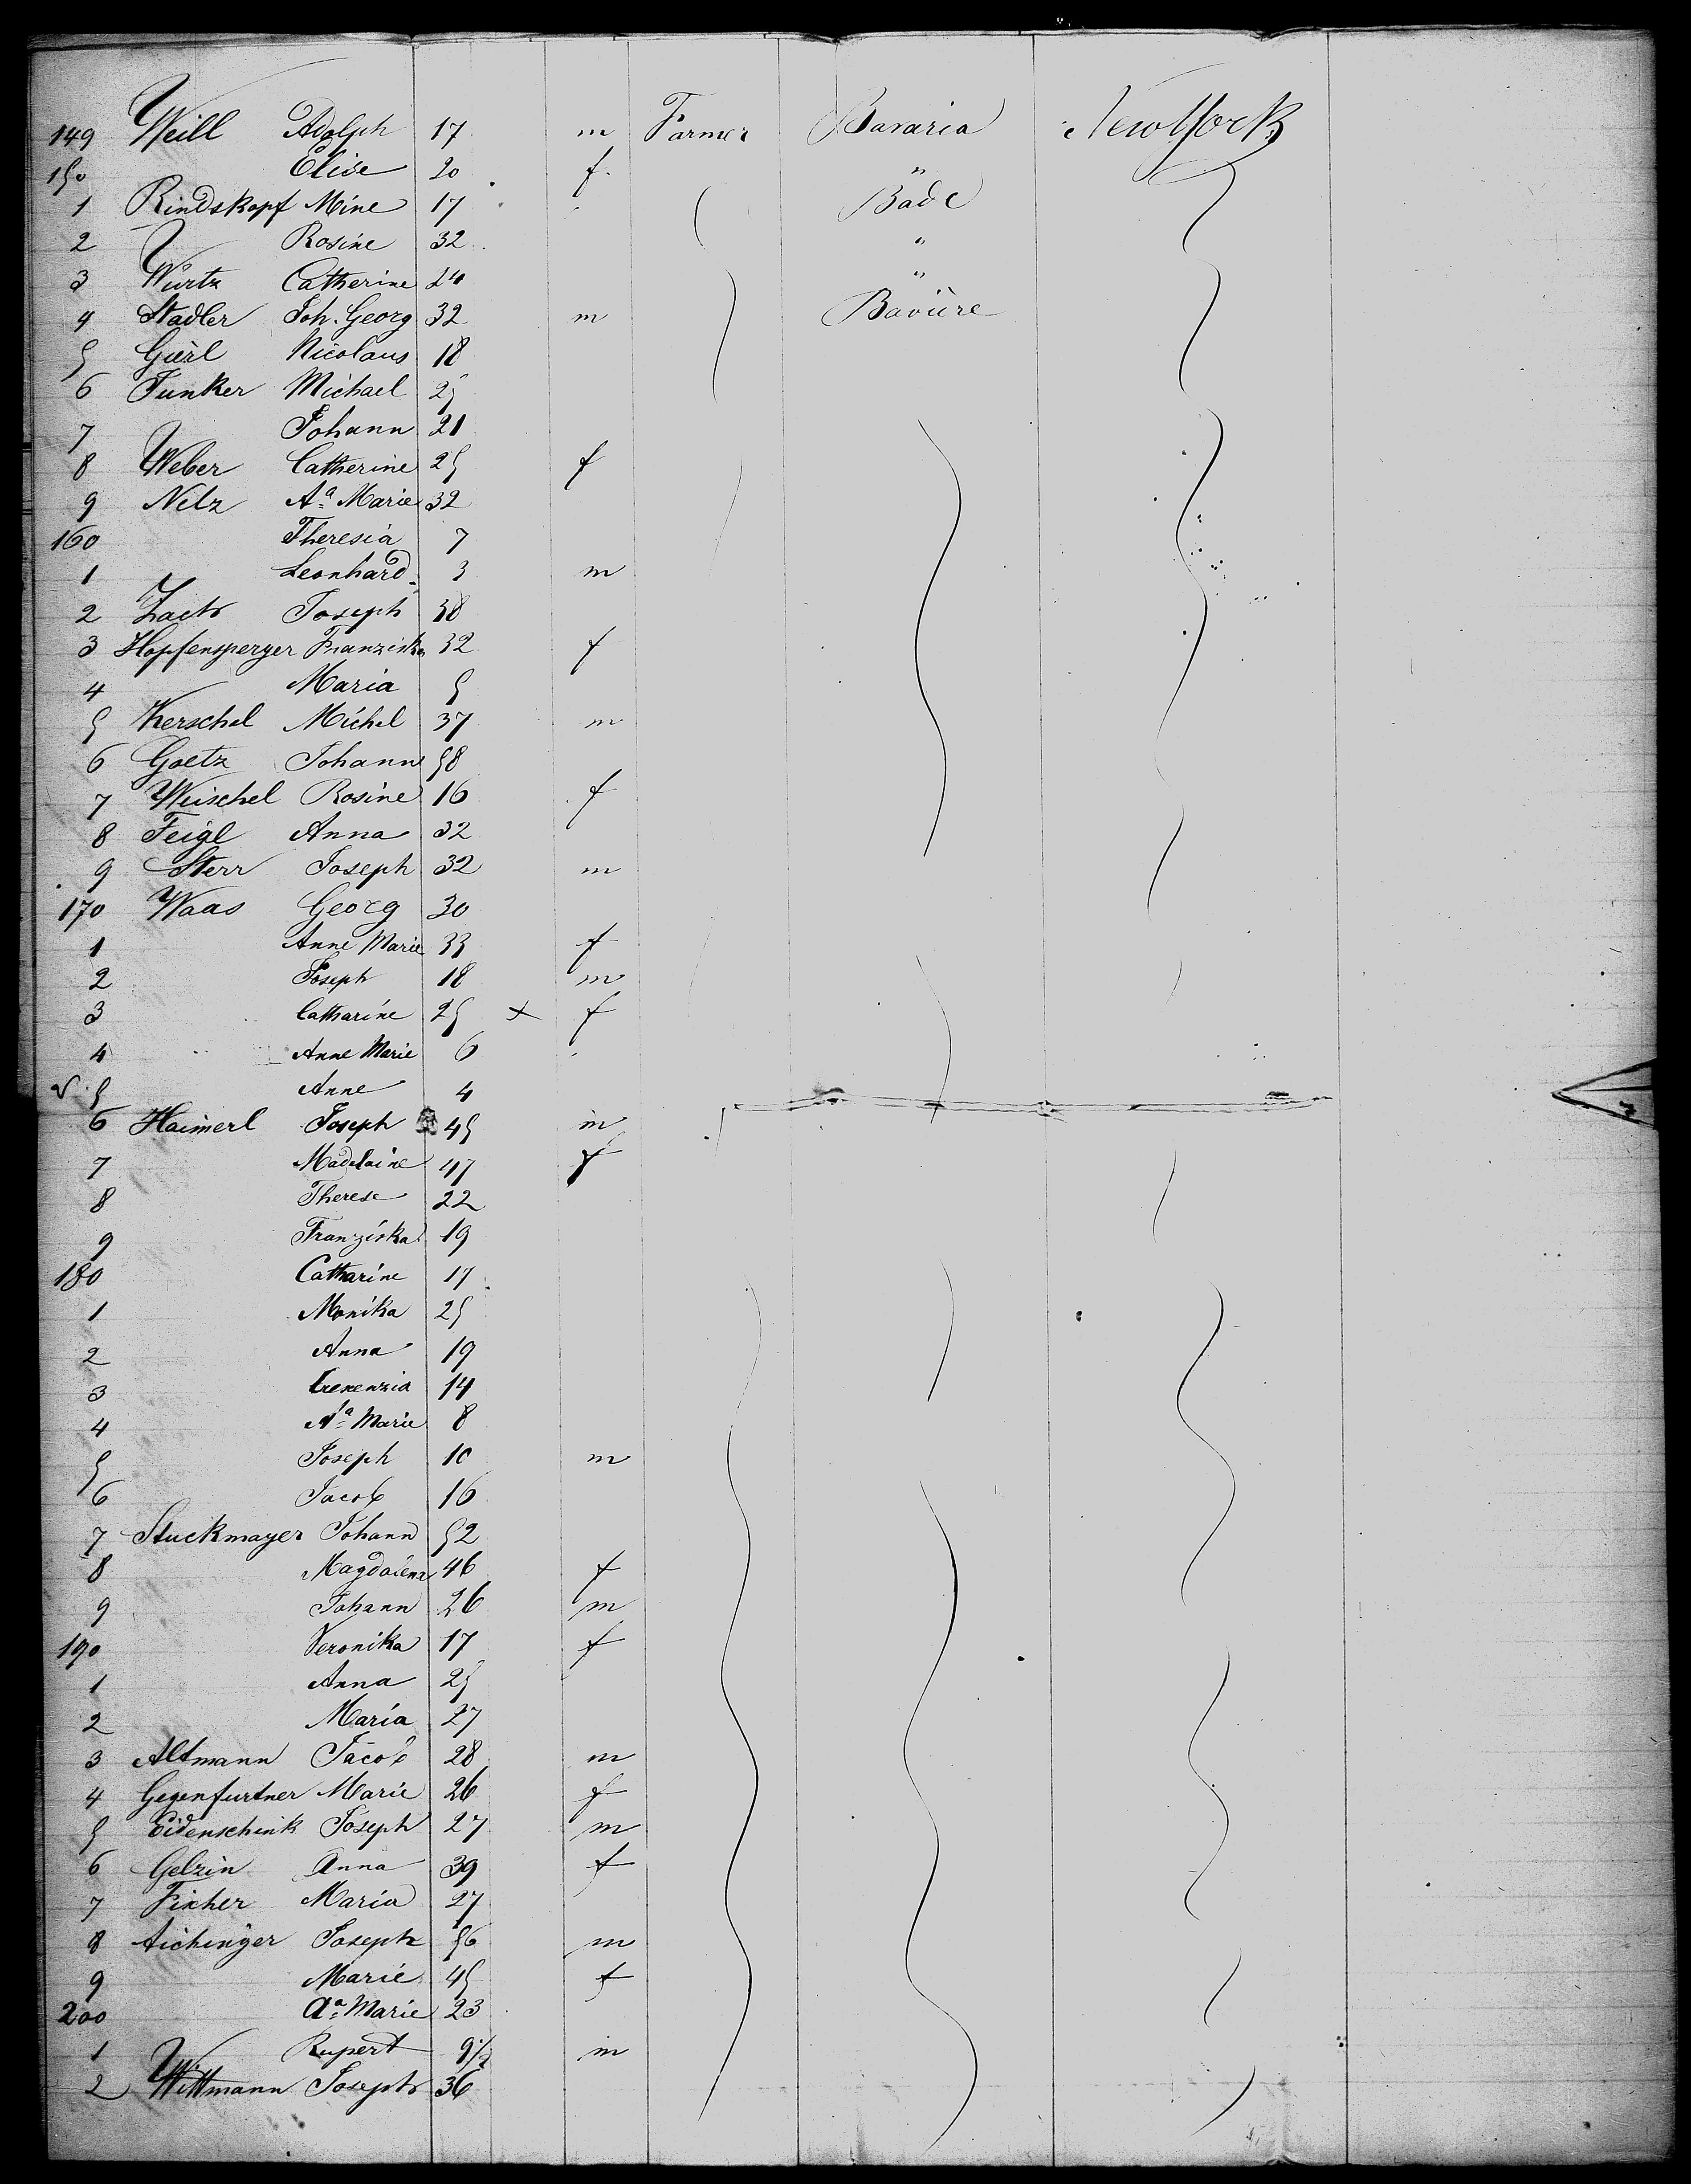 149 Weill Adolph 17 m Farmer Bavaria New York
150 Elise 20 f. "
1 Rindskopf Mine 17 Bade
2 Rosine 32 "
3 Würtz Catherine 24 "
4 Stadler Joh. Georg 32 m Bavière
5 Gierl Nicolaus 18
6 Junker Michael 25
7 Johann 21
8 Weber Catherine 25 f
9 Nelz Aª Marie 32
160 Theresia 7
1 Leonhard 3 m
2 Joseph 38
3 Hopfensperger Franziska 32 f
4 Maria 5
5 Kerschel Michel 37 m
6 Goetz Johann 58
7 Weischel Rosine 16 f
8 Feigl Anna 32
9 Sterr Joseph 32 m
170 Waas Georg 30
1 Anne Marie 33 f
2 Joseph 18 m
3 Catharine 25 x f
4 Anne Marie 6
5 Anne 4
6 Haimerl Joseph 45 m
7 Madelaine 47 f
8 Therese 22
9 Franziska 19
180 Catharine 17
1 Monika 25
2 Anna 19
3 Crenenzia 14
4 Aª Marie 8
5 Joseph 10 m
6 Jacob 16
7 Stuckmayer Johann 52
8 Magdalena 46 f
9 Johann 26 m
190 Veronika 17 f
1 Anna 25
2 Maria 27
3 Altmann Jacob 28 m
4 Gegenfurtner Marie 26 f
5 Eidenschink Joseph 27 m
6 Gelzin Anna 39 f
7 Maria 27
8 Aichinger Joseph 56 m
9 Marie 45 f
200 Aª Marie 23
1 Rupert 9/12 m
2 Wittmann Joseph 36